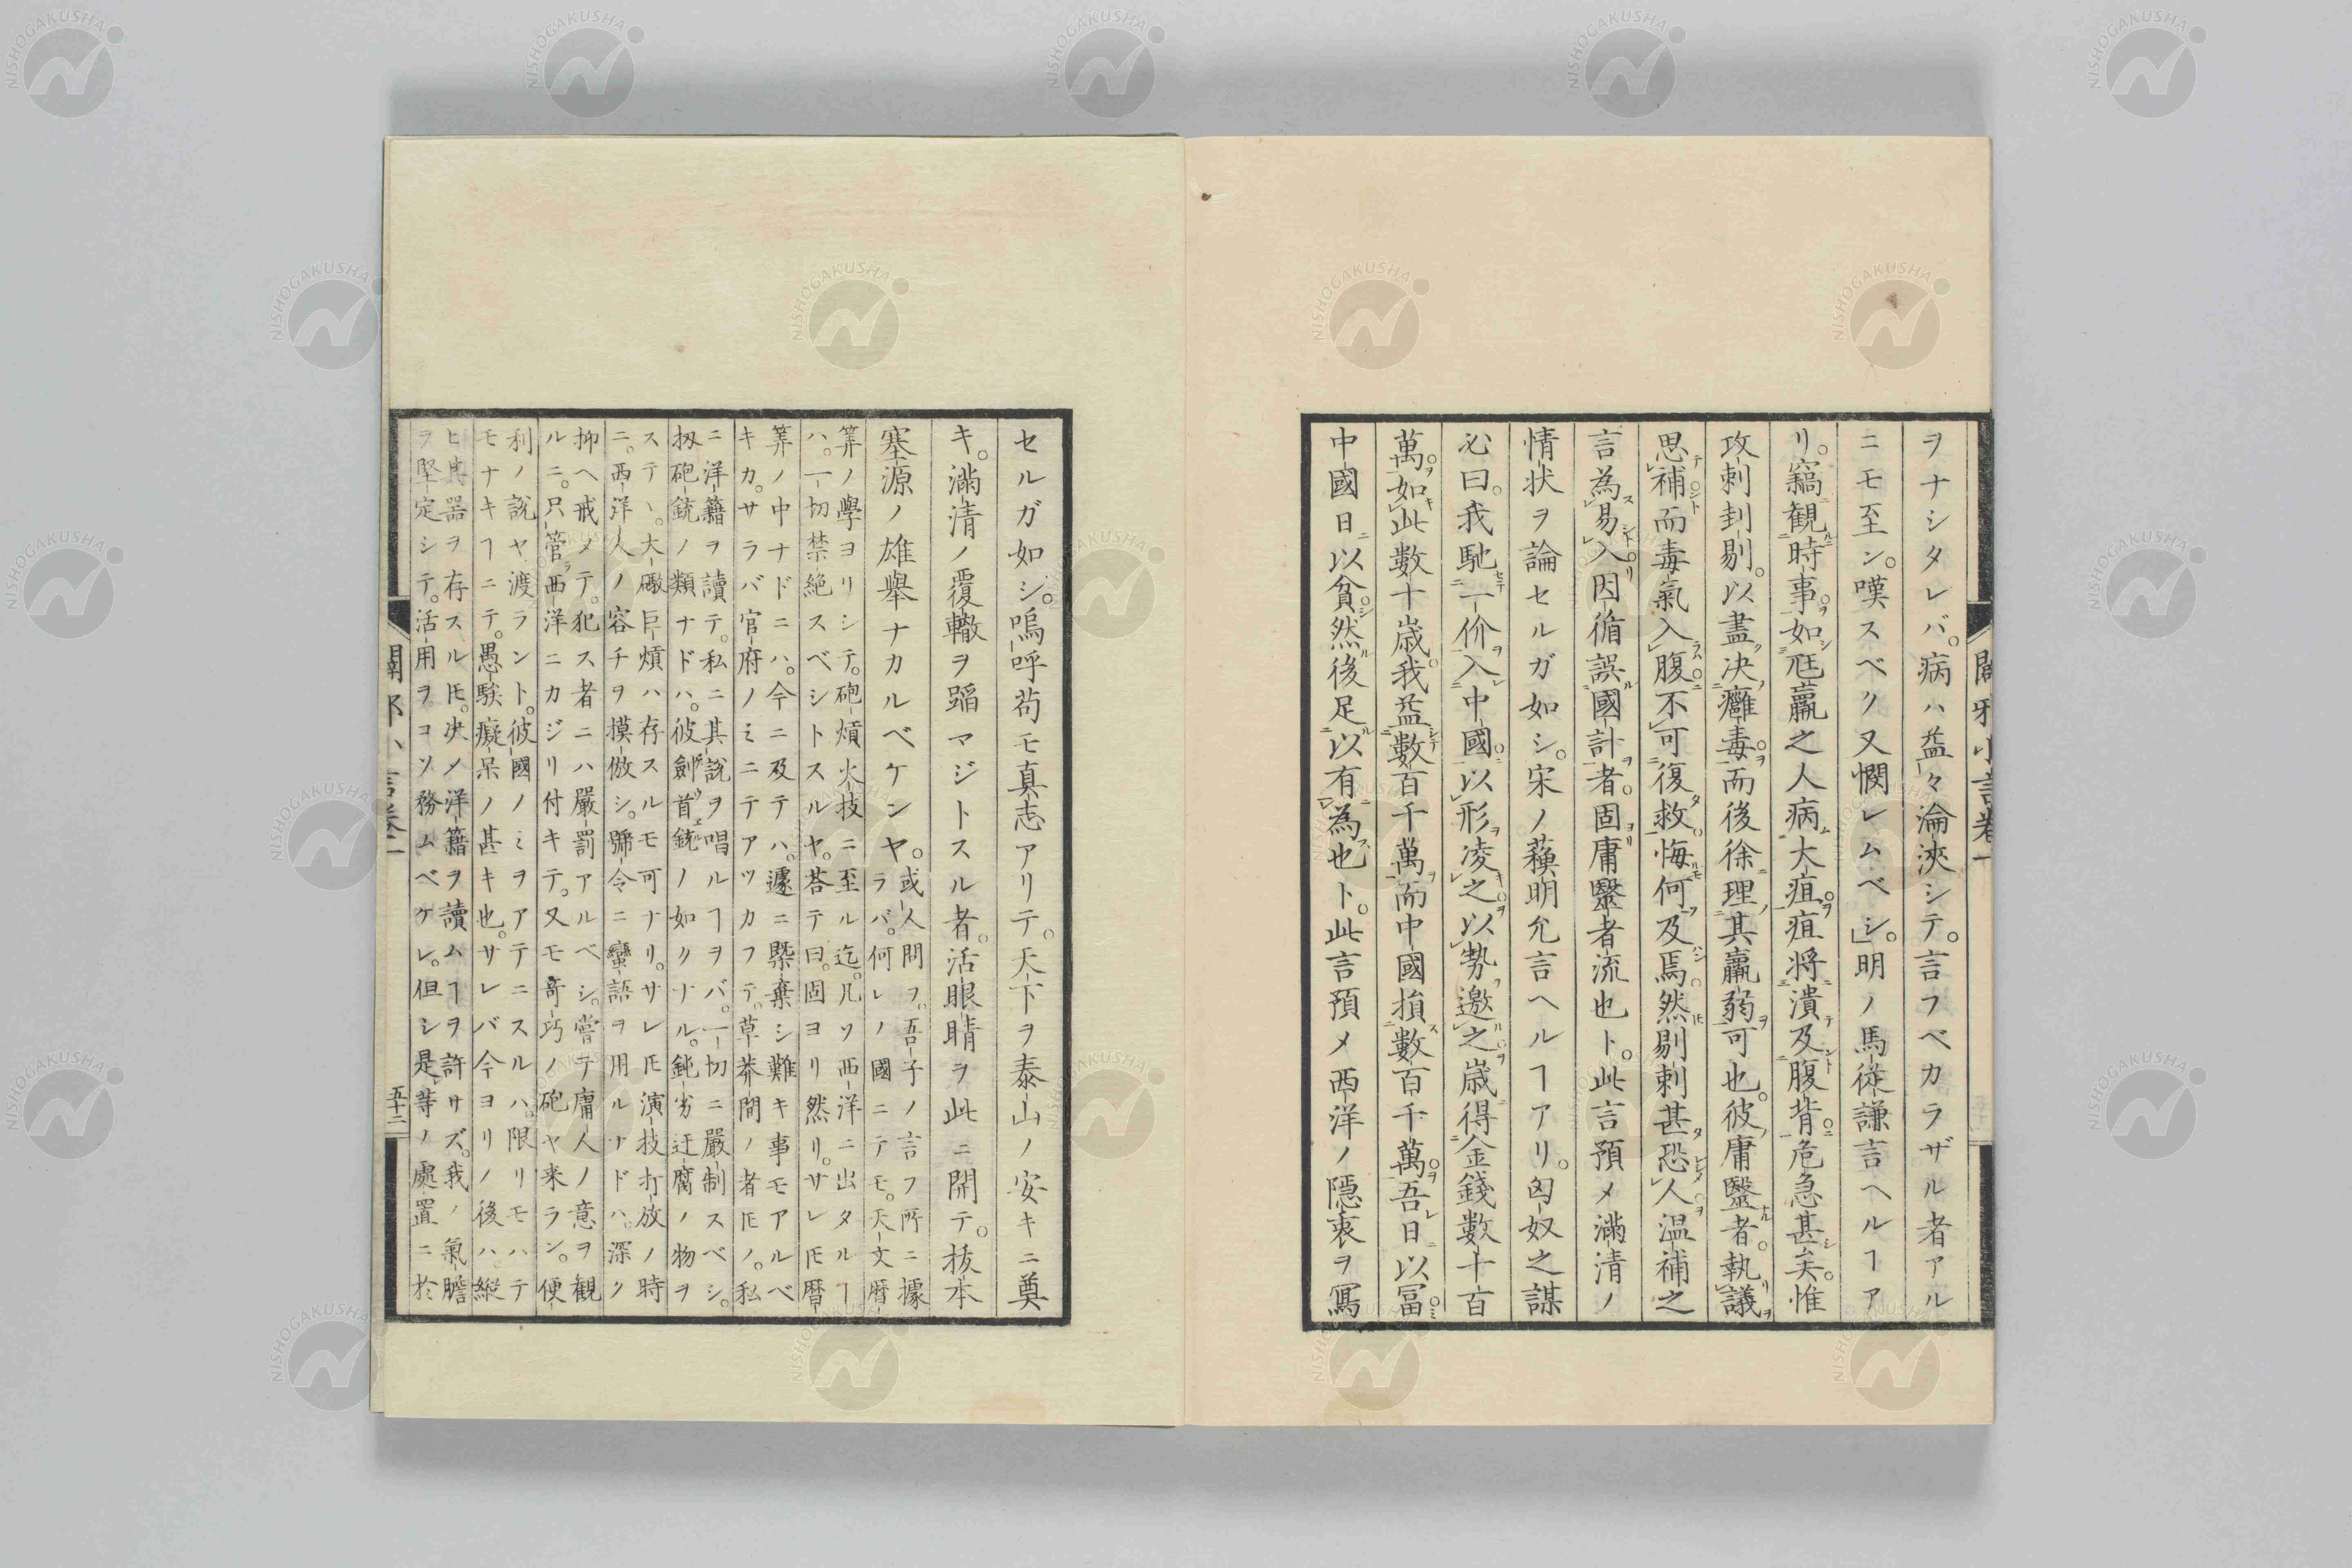 ヲナシタレバ。病ハ益々淪浹シテ。言フベカラザル者アル
ニモ至シ。嘆スベク又憫レムベシ。」明ノ馬従謙言ヘルヿア
リ。竊観時事。如尫羸之人病大疽。疽将潰及腹背。危急甚矣。惟
攻刺刲剔。以盡決癰毒。而後徐理其羸弱可也。彼庸醫者。執議
思補而毒氣入腹。不可復救。悔何及焉。然剔刺甚恐人。温補之
言為易入。因循誤國計者。固庸醫者流也ト。此言預メ滿清ノ
情状ヲ論セルガ如シ。宋ノ蘓明允言ヘルヿアリ。匈奴之謀
必曰。我馳一价入中國。以形凌之。以勢邀之。歳得金錢數十百
萬。如此數十歳。我益數百千萬。而中國損數百千萬。吾日以冨。
中國日以貧。然後足以有為也ト。此言預メ西洋ノ隠衷ヲ冩
闢邪小言巻一
セルガ如シ。嗚呼苟モ真志アリテ。天下ヲ泰山ノ安キニ奠
キ。滿清ノ覆轍ヲ蹈マジトスル者。活眼睛ヲ此ニ開テ。抜本
塞源ノ雄舉ナカルベケンヤ。
或人問フ。吾子ノ言フ所ニ據
ラバ。何レノ國ニテモ。天文暦
筭ノ學ヨリシテ。砲熕火技ニ至ル迄。凡ソ西洋ニ出タルヿ
ハ。一切禁絶スベシトスルヤ。荅テ曰。固ヨリ然リ。サレ𪜈暦
筭ノ中ナドニハ。今ニ及テハ。遽ニ槩棄シ難キ事モアルベ
キカ。サラバ官府ノミニテアツカフテ。草莽間ノ者𪜈ノ。私
ニ洋籍ヲ讀テ。私ニ其説ヲ唱ルヿヲバ。一切ニ嚴制スベシ。
扨砲銃ノ類ナドハ。彼劍首銃ノ如クナル。鈍劣迂腐ノ物ヲ
ステヽ。大礮巨熕ハ存スルモ可ナリ。サレ𪜈演技打放ノ時
ニ。西洋人ノ容チヲ摸倣シ。號令ニ蠻語ヲ用ルナドハ。深ク
抑ヘ戒メテ。犯ス者ニハ嚴罰アルベシ。嘗テ庸人ノ意ヲ観
ルニ。只管西洋ニカジリ付キテ。又モ竒巧ノ砲ヤ来ラン。便
利ノ説ヤ渡ラント。彼國ノミヲアテニスルハ。限リモハテ
モナキヿニテ。愚騃癡呆ノ甚キ也。サレバ今ヨリノ後ハ。縦
ヒ其器ヲ存スル𪜈。決メ洋籍ヲ讀ムヿヲ許サズ。我ノ氣膽
ヲ堅定シテ。活用ヲコソ務ムベケレ。但シ是等ノ處置ニ於
闢邪小言巻一
五十二